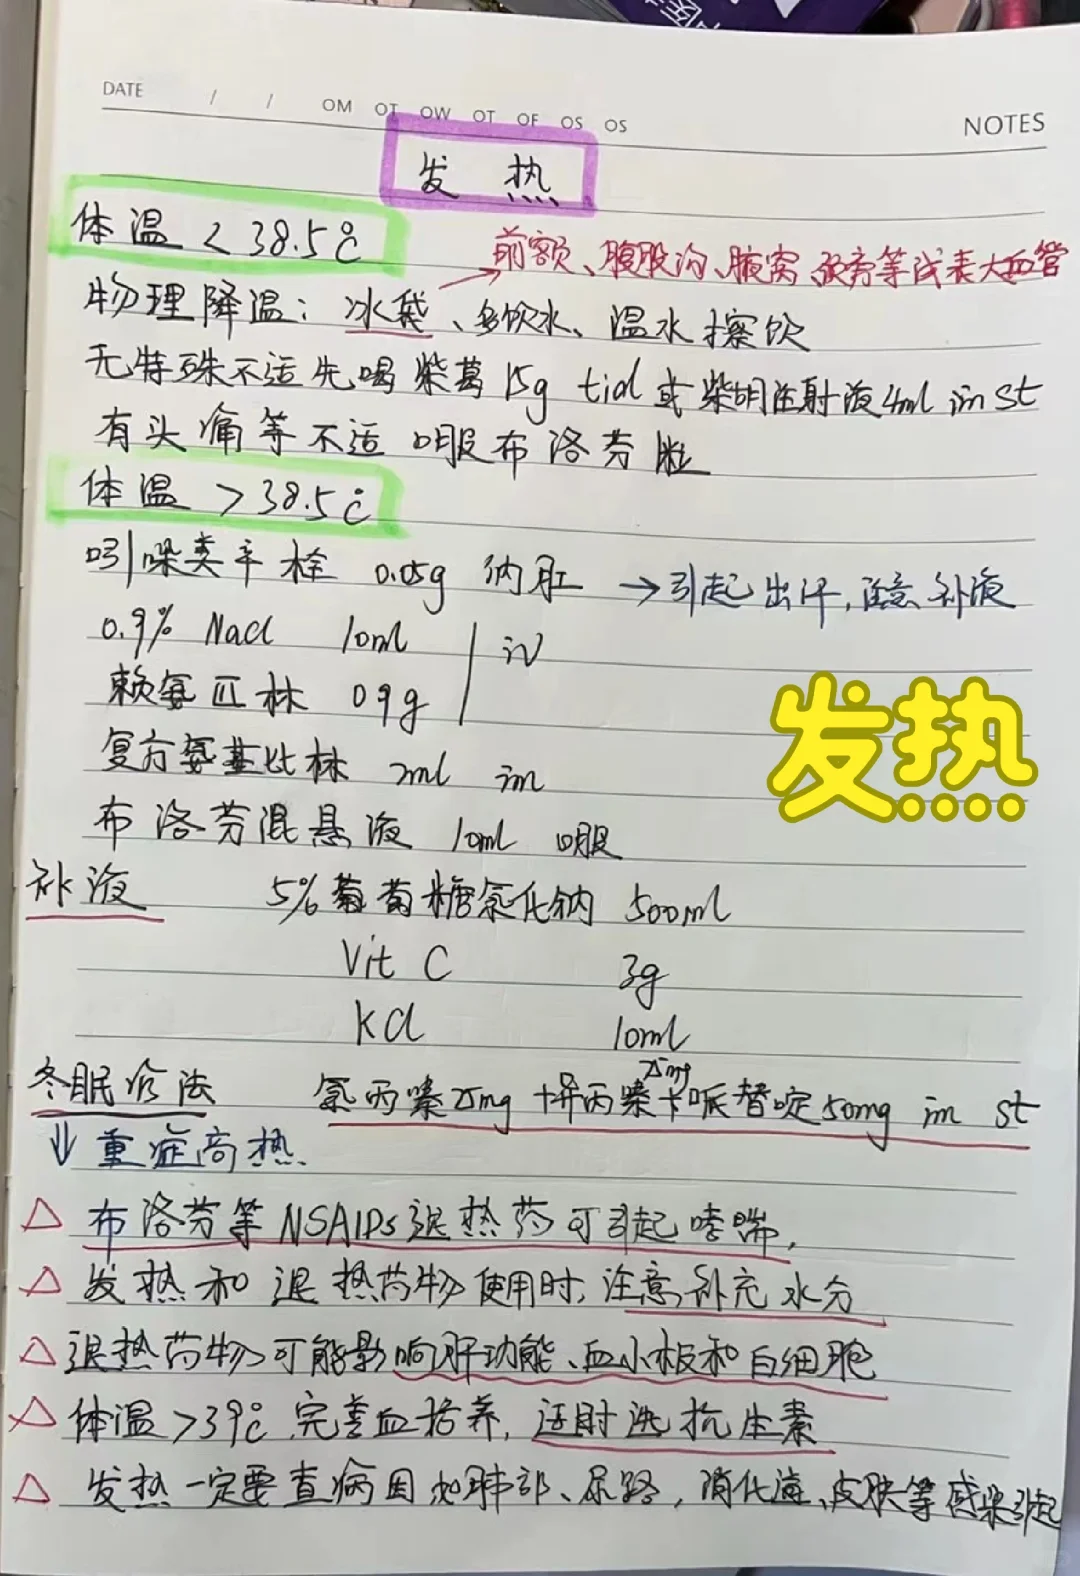 DATE / / OM OT OW OT OF OS OS NOTES
发热
体温 < 38.5℃
前额、腹股沟、腋窝、颈旁等浅表大血管
物理降温：冰袋、多饮水、温水擦饮
无特殊不适先喝柴葛 15g tid 或柴胡注射液 4ml im st
有头痛等不适 口服布洛芬 1粒
体温 > 38.5℃
吲哚美辛栓 0.05g 纳肛 → 引起出汗，注意补液
0.9% NaCl 10ml
iv
赖氨匹林 0.9g
复方氨基比林 2ml im
布洛芬混悬液 10ml 口服
发热
补液 5%葡萄糖氯化钠 500ml
Vit C 3g
KCl 10ml
冬眠疗法 氯丙嗪 25mg + 异丙嗪 25mg + 哌替啶 50mg im st
↓重症高热.
△ 布洛芬等NSAIDs退热药可引起哮喘，
△ 发热和退热药物使用时，注意补充水分
△ 退热药物可能影响肝功能、血小板和白细胞
△ 体温 >39℃ 完善血培养，适时选抗生素
△ 发热一定要查病因 如肺部、尿路，消化道、皮肤等感染引起